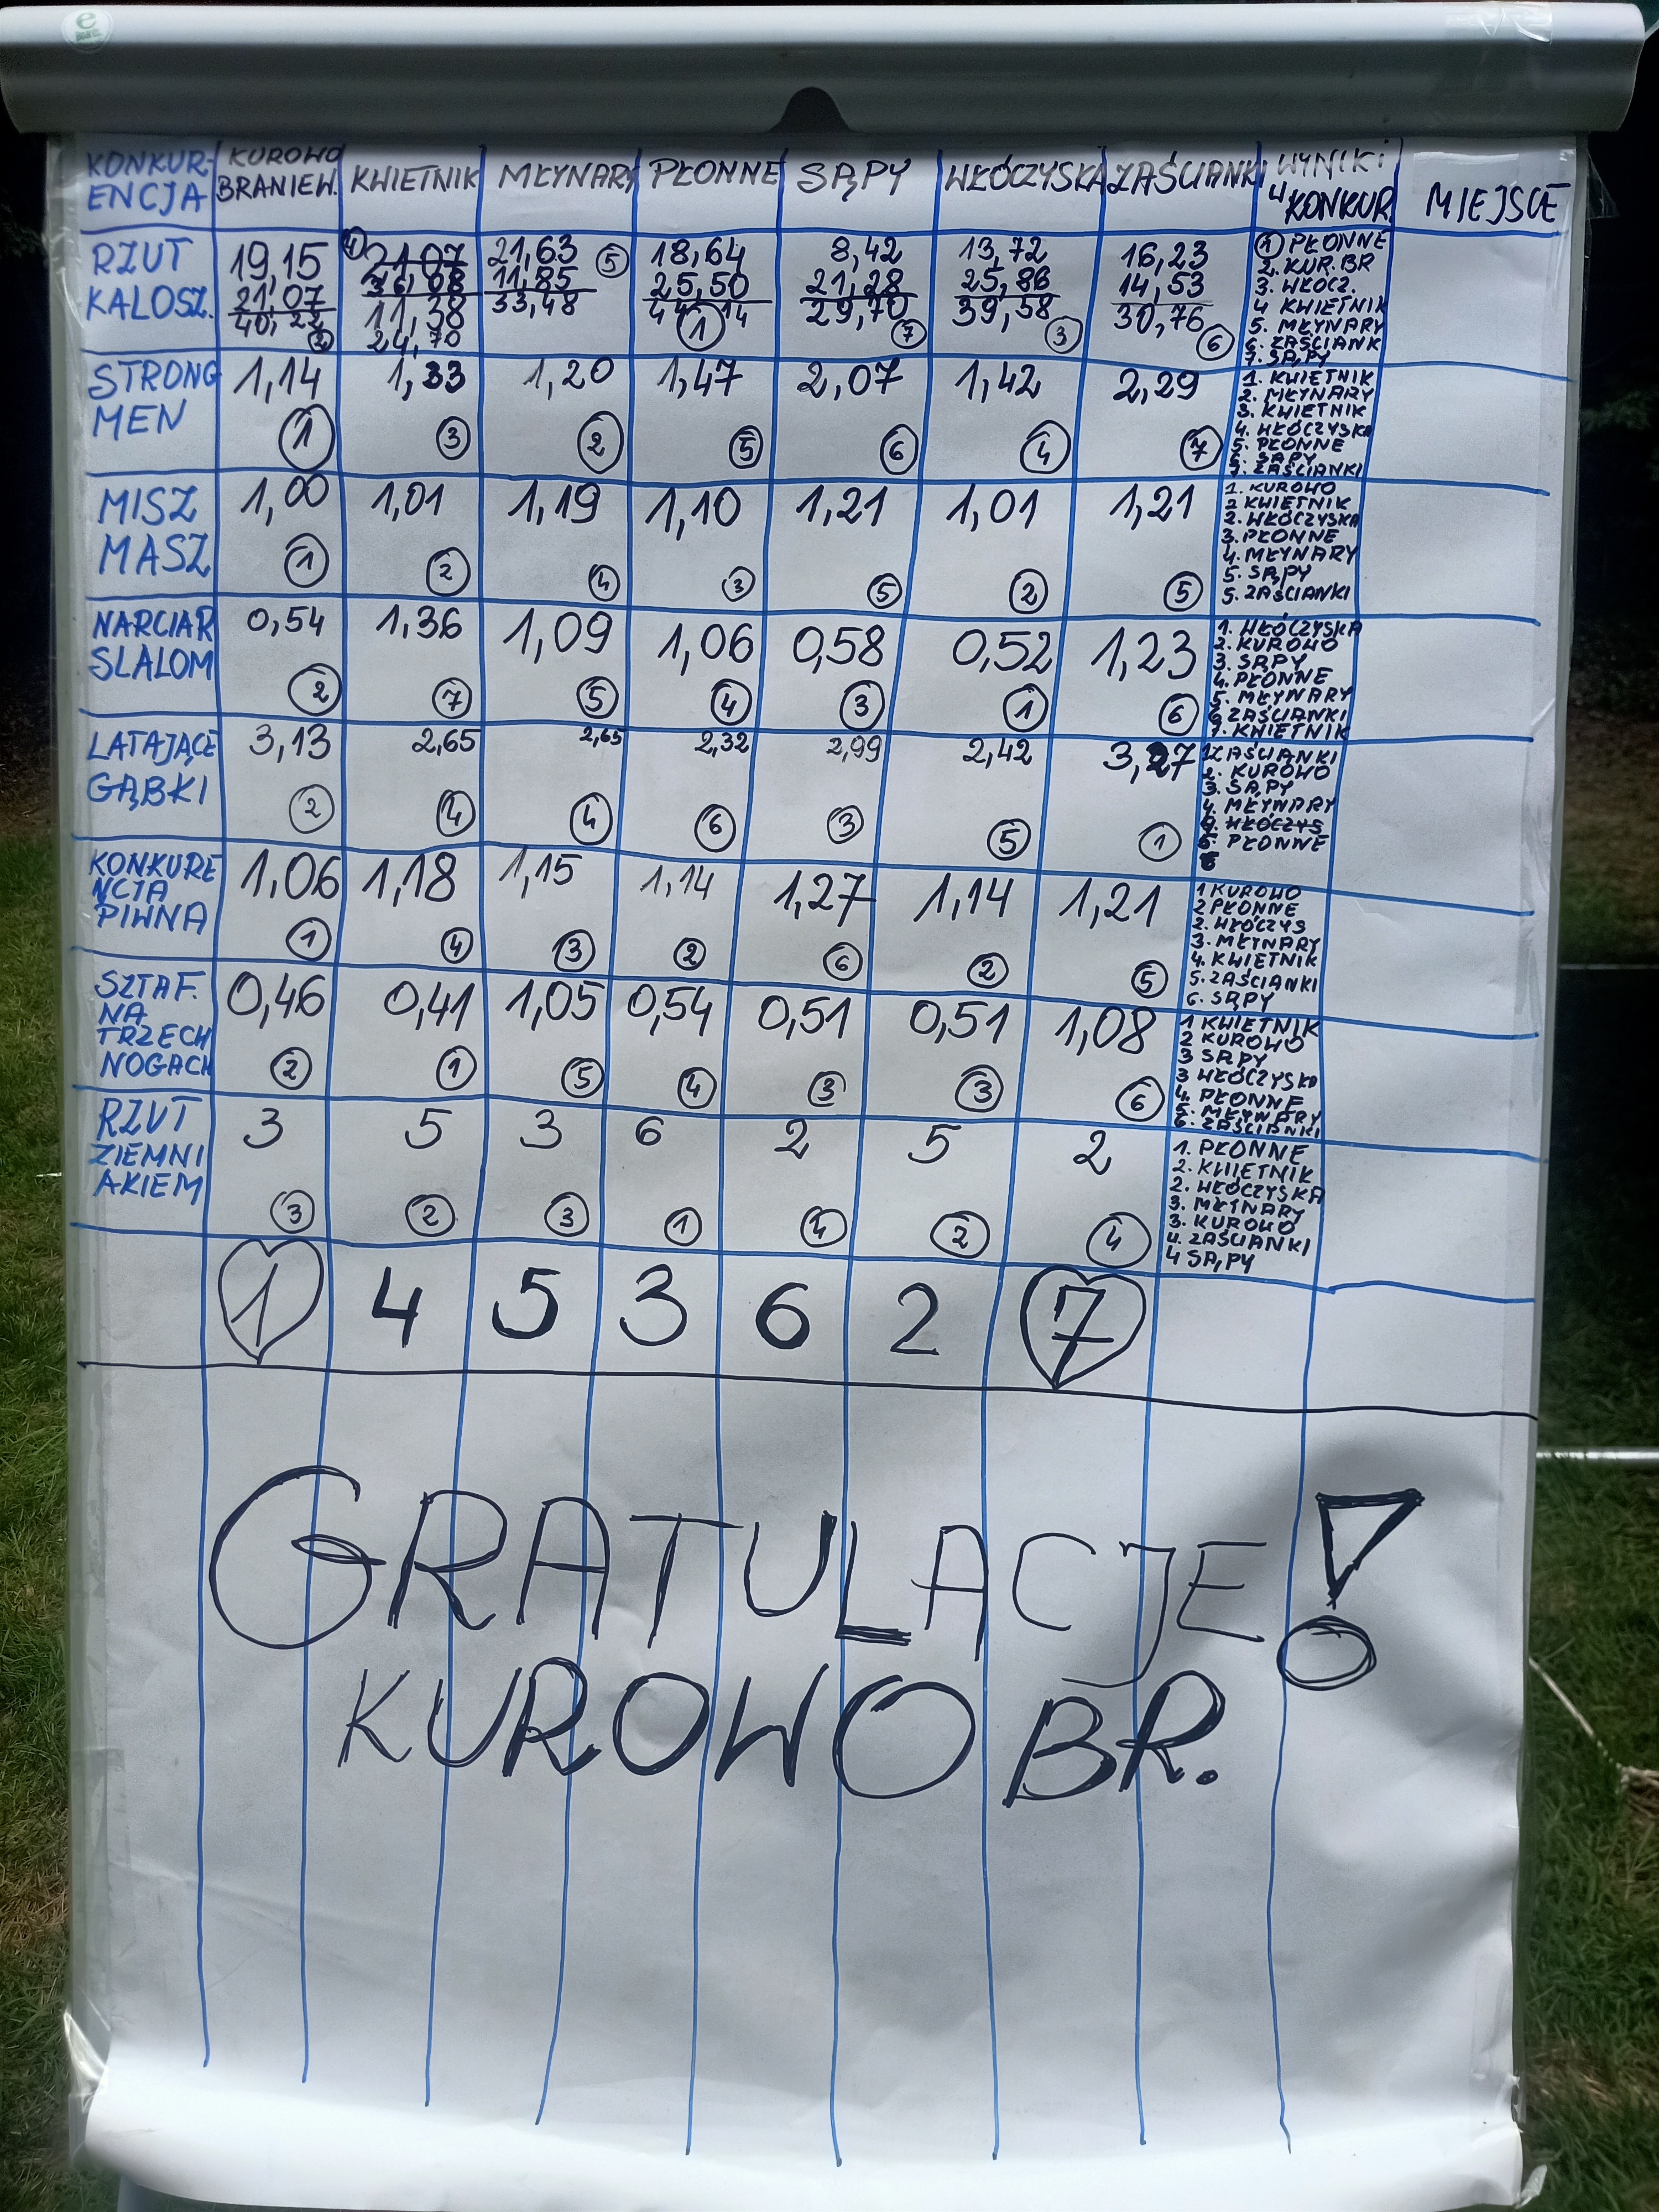 KONKUR-ENCJA KUROWO BRANIEW. KWIETNIK MŁYNARY PŁONNE SĄPY WŁÓCZYSKA ZAŚCIANKI WYNIKI KONKUR. MIEJSCE
RZUT KALOSZ.
19,15
21,07
40,22
2
4
21,07
11,38
24,70
21,63
11,85
33,48
5
18,64
25,50
44,14
1
8,42
21,28
29,70
7
13,72
25,86
39,58
3
16,23
14,53
30,76
6
1 PŁONNE
2. KUR. BR
3. WŁÓCZ.
4 KWIETNIK
5. MŁYNARY
6. ZAŚCIANK
7. SĄPY
STRONG MEN
1,14 1,33 1,20 1,47 2,07 1,42 2,29
1 3 2 5 6 4 7
1. KWIETNIK
2. MŁYNARY
3. KWIETNIK
4. WŁÓCZYSKA
5. PŁONNE
6. SĄPY
7. ZAŚCIANKI
MISZ MASZ
1,00 1,01 1,19 1,10 1,21 1,01 1,21
1 2 4 3 5 2 5
1. KUROWO
2 KWIETNIK
2. WŁÓCZYSKA
3. PŁONNE
4. MŁYNARY
5. SĄPY
5. ZAŚCIANKI
NARCIAR SLALOM
0,54 1,36 1,09 1,06 0,58 0,52 1,23
2 7 5 4 3 1 6
1. WŁÓCZYSKA
2. KUROWO
3. SĄPY
4. PŁONNE
5. MŁYNARY
6 ZAŚCIANKI
7. KWIETNIK
LATAJĄCE GĄBKI
3,13 2,65 2,65 2,32 2,99 2,42 3,27
2 4 4 6 3 5 1
1 ZAŚCIANKI
2. KUROWO
3. SĄPY
4. MŁYNARY
WŁÓCZYS
PŁONNE
6
KONKURE NCJA PIWNA
1,06 1,18 1,15 1,14 1,27 1,14 1,21
1 4 3 2 6 2 5
1 KUROWO
2 PŁONNE
2. WŁÓCZYS
3. MŁYNARY
4. KWIETNIK
5. ZAŚCIANKI
6. SĄPY
SZTAF. NA TRZECH NOGACH
0,46 0,41 1,05 0,54 0,51 0,51 1,08
2 1 5 4 3 3 6
1 KWIETNIK
2 KUROWO
3 SĄPY
3 WŁÓCZYSKA
4. PŁONNE
5. MŁYNARY
6. ZAŚCIANKI
RZUT ZIEMNI AKIEM
3 5 3 6 2 5 2
3 2 3 1 4 2 4
1. PŁONNE
2. KWIETNIK
2. WŁÓCZYSKA
3. MŁYNARY
3. KUROWO
4. ZAŚCIANKI
4 SĄPY
1 4 5 3 6 2 7
GRATULACJE!
KUROWO BR.